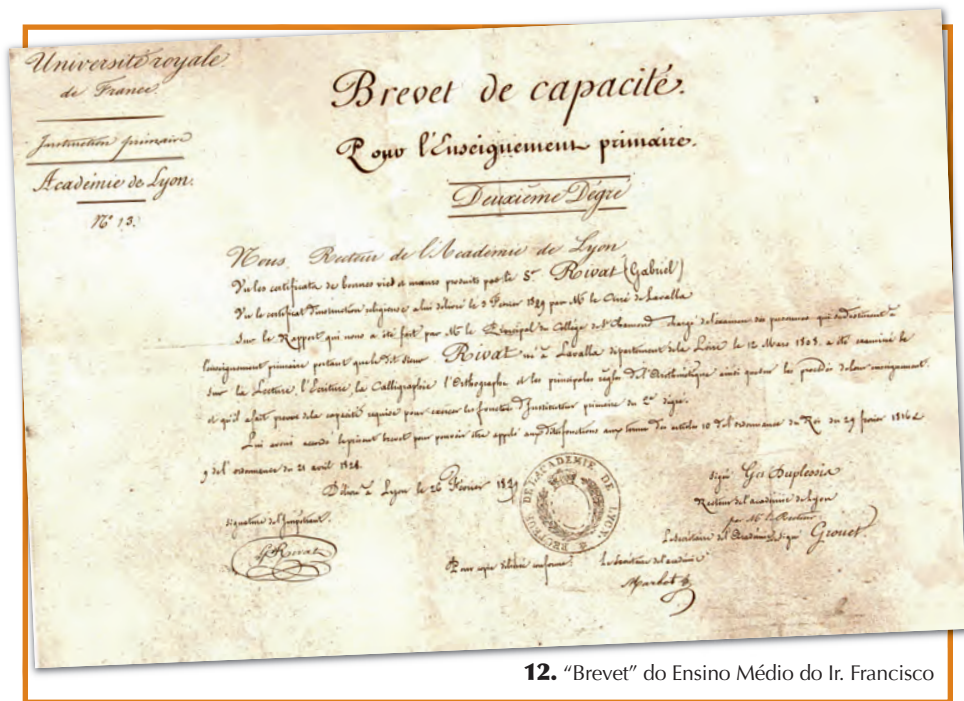 Université royale
de France.
Instruction primaire
Académie de Lyon.
N° 13.
Brevet de capacité.
Pour l'Enseignement primaire.
Deuxième Dégré
Nous, Recteur de l'Académie de Lyon
Vu les certificats de bonnes vies et mœurs produits par le Sr. Rivat (Gabriel)
Vu le certificat d'instruction religieuse a lui délivré le 3 Février 1829 par Mr. le Curé de Lavalla
Sur le Rapport qui nous a été fait par Mr. le Principal du Collège de St Chamond chargé de l'examen des personnes qui se destinent à
l'enseignement primaire portant que le dit sieur Rivat né à Lavalla département de la Loire le 12 Mars 1808. a été examiné
sur la Lecture, l'Ecriture, la Calligraphie l'Orthographe et les principales règles de l'Arithmétique ainsi que sur les procédés de leur enseignement.
et qu'il a fait preuve de la capacité requise pour exercer les fonctions d'Instituteur primaire du 2e dégré.
Lui avons accordé le présent brevet pour pouvoir être appelé aux dites fonctions aux termes des articles 10 de l'ordonnance du Roi du 29 février 1816 &
9 de l'ordonnance du 21 avril 1828.
Délivré à Lyon le 26 Février 1829
signature de l'Impétrant.
G. Rivat
RECTEUR DE L'ACADEMIE DE LYON.
signé Duplessis
Recteur de l'académie de Lyon
par Mr. le Recteur
Le secrétaire de l'Académie signé Grouet
Pour copie conforme: Le secrétaire de l'académie
12. “Brevet” do Ensino Médio do Ir. Francisco